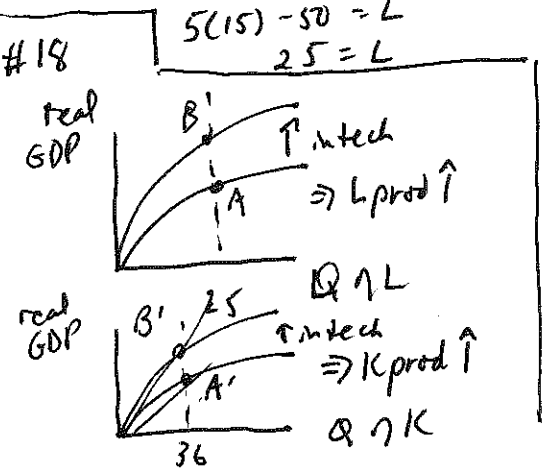 5(15) - 50 = L
#18
25 = L
real
GDP
B'
↑ in tech
A
⇒ L prod ↑
Q of L
real
GDP
B'
25
↑ in tech
⇒ K prod ↑
A'
Q of K
36